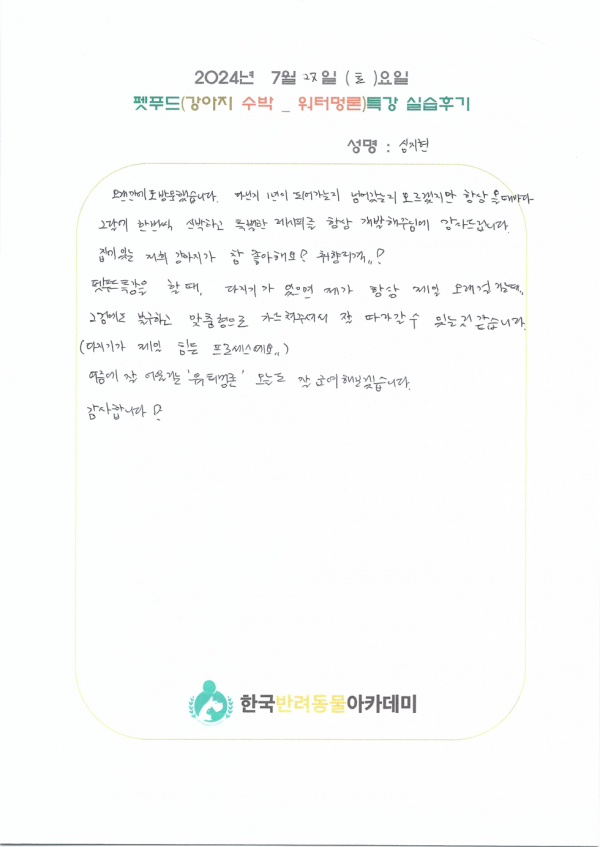 2024년 7월 27일 (토)요일
펫푸드(강아지 수박 _ 워터멍론)특강 실습후기
성명 : 심지현
오랜만에 또 방문했습니다. 마신지 1년이 되어가는지 넘어갔는지 모르겠지만 항상 올때마다
그달에 한번씩 신박하고 특별한 레시피를 항상 개발해주심에 감사드립니다.
집에 있는 저희 강아지가 참 좋아해요? 취향저격,,?
펫푸드특강을 할 때, 다지기가 있으면 제가 항상 제일 오래걸리는데,,
그럼에도 불구하고 맞춤형으로 가르쳐주셔서 잘 따라갈 수 있는것 같습니다.
(다지기가 제일 힘든 프로세스에요,,)
여름에 잘 어울리는 '워터멍론' 오늘도 잘 급여해보겠습니다.
감사합니다
한국반려동물아카데미